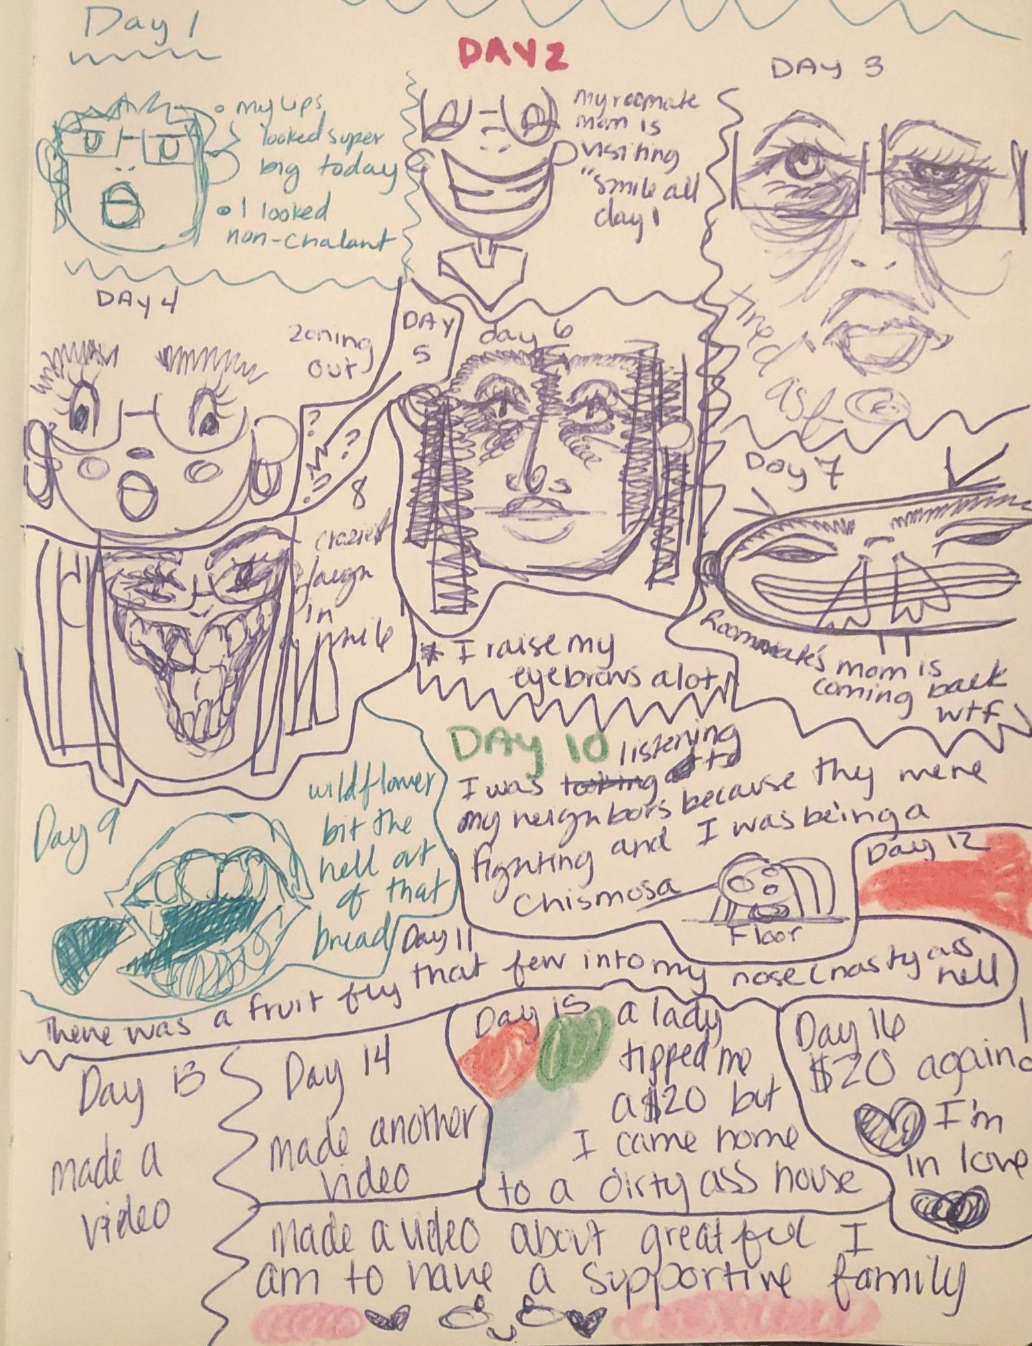 Day 1
• my lips
looked super
big today
• I looked
non-chalant
DAY 2
my roomate
mom is
visiting
"smile all
day!
DAY 3
tired
asf
DAY 4
zoning
out
DAY
5
? ?
?
day 6
* I raise my
eyebrows alot
Day 7
Roommate's mom is
coming back
wtf
8
craziest
laugh
in
while
Day 9
wildflower
bit the
hell out
of that
bread
DAY 10
listening
I was looking at to
my neighbors because they were
fighting and I was being a
chismosa
Floor
Day 11
There was a fruit fly that few into my nose (nasty ass
hell
Day 12
Day 13
made a
video
Day 14
made another
video
Day 15
a lady
tipped me
a $20 but
I came home
to a dirty ass house
Day 16
$20 again!
I'm
in love
made a video about great ful I
am to have a supportive family